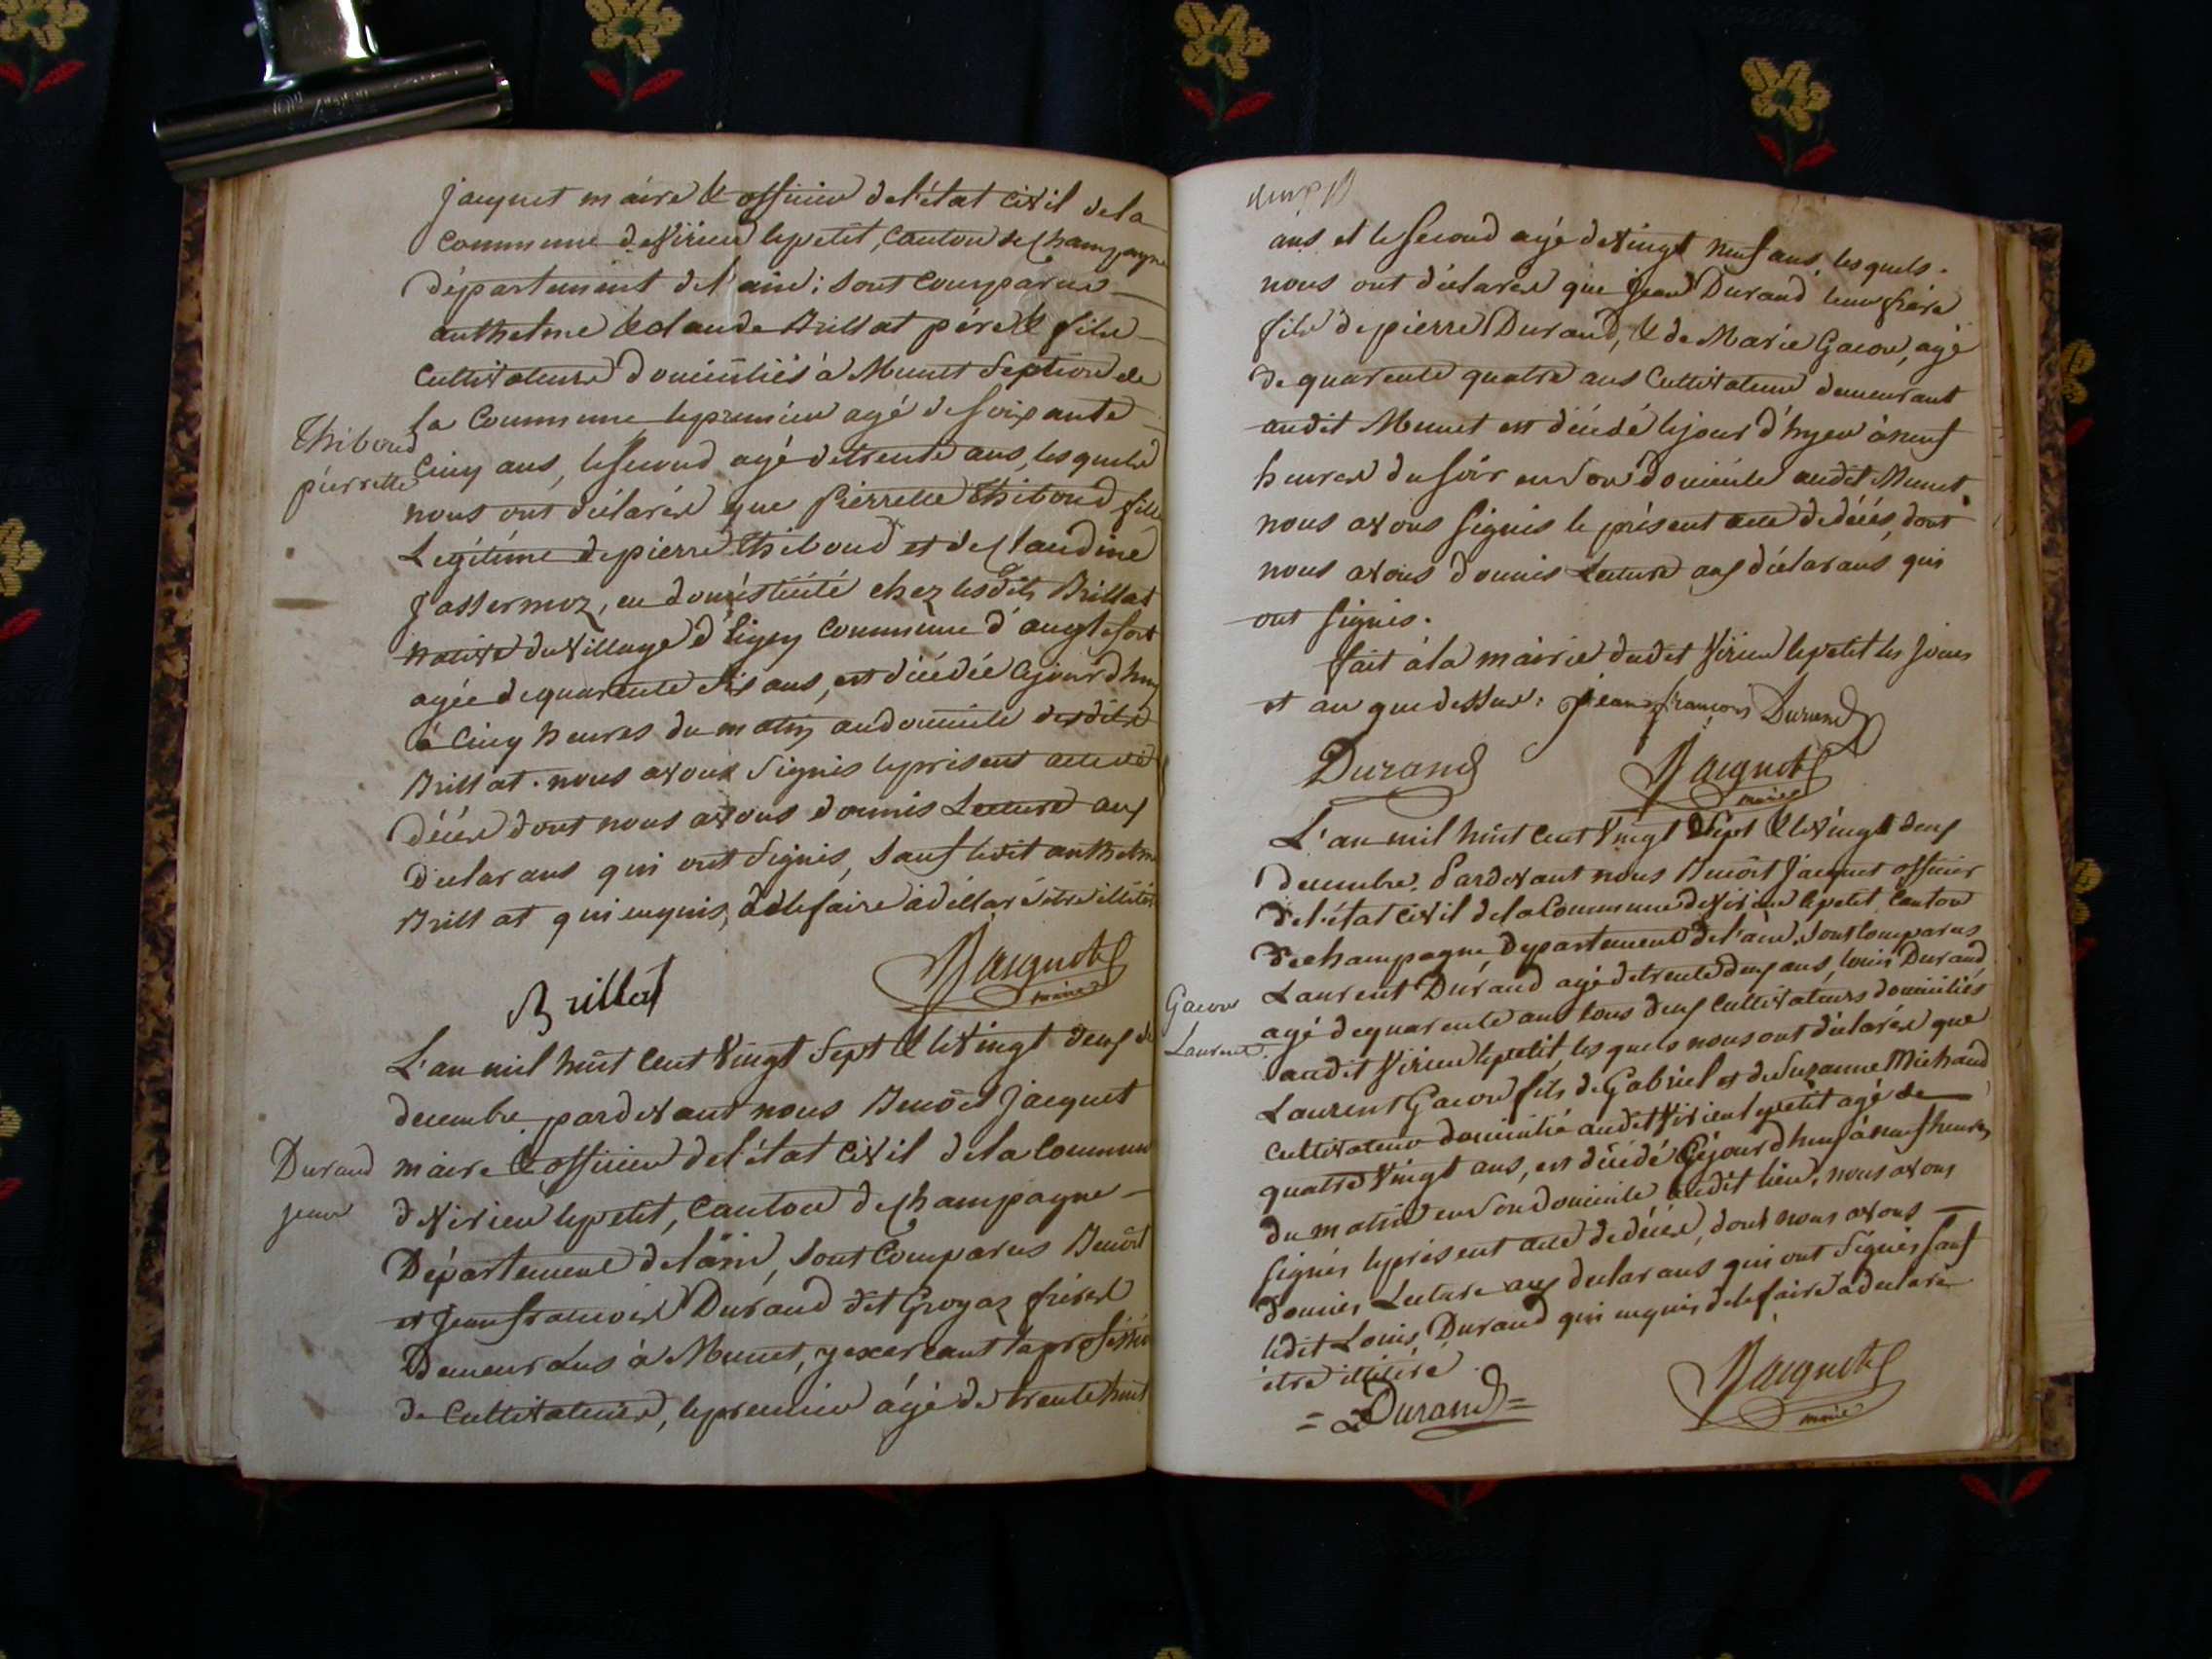 Jacquet maire & officier de l'état civil de la
commune de Virieu le petit, canton de Champagne
département de l'ain; sont comparus
anthelme & claude Brillat père & fils
cultivateurs domiciliés à Munet section de
la commune le premier agé de soixante
Thiboud
pierrette
cinq ans, le second agé de trente ans, lesquels
nous ont déclarés que Pierrette Thiboud fille
Legitime de pierre Thiboud et de Claudine
Jassermoz, en domésticité chez lesdits Brillat
native du village d' commune d'anglefort
agée de quarente six ans, est décédée cejourdhuy
à cinq heures du matin au domicile desdits
Brillat. nous avons signés le présent acte de
décès dont nous avons donnés Lecture aux
déclarans qui ont signés, sauf ledit anthelme
Brillat qui enquis, de le faire a déclaré être illitéré
Brillat
Jacquet
maire
L'an mil huit cent vingt sept & le vingt deux de
decembre pardevant nous Benôit Jacquet
Durand
jean
maire & officier de l'état civil de la commune
de Virieu le petit, canton de Champagne
Département de l'ain, sont comparus Benoit
et Jean francois Durand dit Groyaz frères
Demeurans à Munet, y exercant la profession
de cultivateurs, le premier àgé de trente huit
ans et le second agé de vingt neuf ans, lesquels
nous ont déclarés que Jean Durand leur frère
fils de pierre Durand, & de Marie Gacon, agé
de quarente quatre ans cultivateur demeurant
audit Munet est décédé le jour d'hyer à neuf
heures du soir en son domicile audit Munet.
nous avons signés le présent acte de décés, dont
nous avons donnés Lecture aux déclarans qui
ont signés.
fait à la mairie dudit Virieu le petit les jours
et an que dessus. jean françois Durand
Durand
Jacquet
maire
L'an mil huit cent vingt sept & le vingt deux
decembre. Pardevant nous Benoit Jacquet officier
de l'état civil de la commune de Virieu le petit canton
de champagne, Département de l'ain. sont comparus
Laurent Durand agé de trente deux ans, louis Durand
Gacon
Laurent.
agé de quarente ans tous deux cultivateurs domiciliés
audit Virieu le petit, lesquels nous ont déclarés que
Laurent Gacon fils de Gabriel et de Suzanne Michaud
cultivateur domicilié audit Virieu le petit agé de
quatre vingt ans, est décédé cejourdhuy à neuf heures
du matin en son domicile audit lieu. nous avons
signés le présent acte de décès, dont nous avons
donnés Lecture aux déclarans qui ont signés sauf
ledit Louis Durand qui enquis de le faire a déclaré
être illitéré
= Durand =
Jacquet
maire